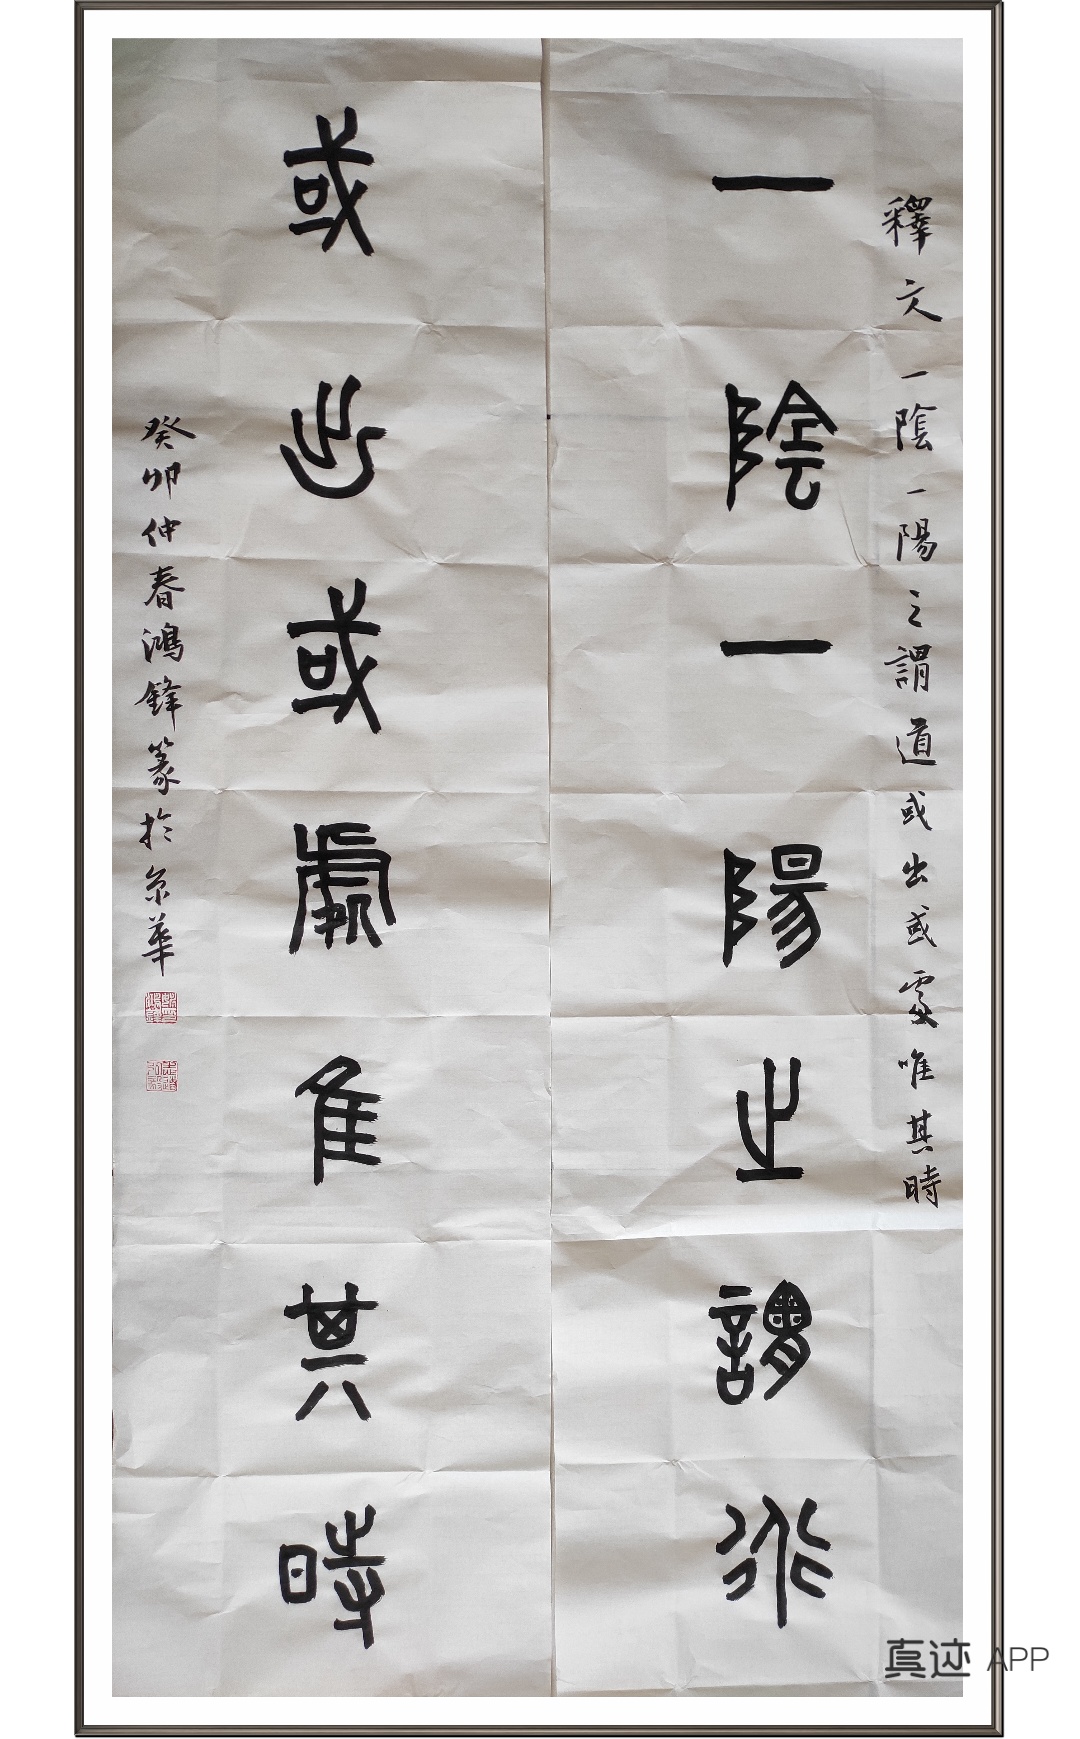 釋文一陰一陽之謂道或出或處唯其時
一陰一陽之謂道
或出或處隹其時
癸卯仲春鴻鋒篆於京華
真迹 APP